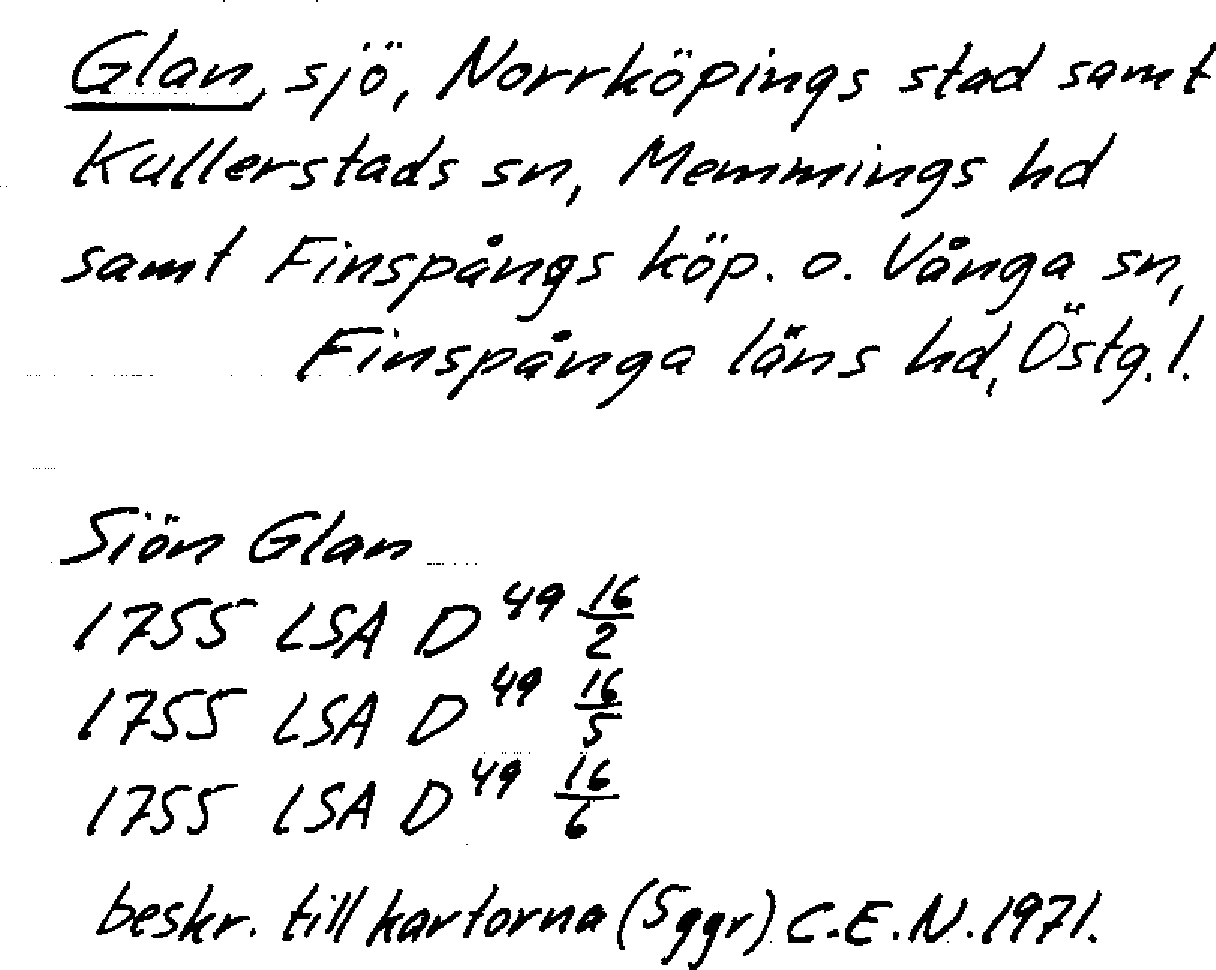 Glan, sjö, Norrköpings stad samt
Kullerstads sn, Memmings hd
samt Finspångs köp. o. Vånga sn,
Finspånga läns hd, Östg.l.
Siön Glan
1755 LSA D 49 16/2
1755 LSA D 49 16/5
1755 LSA D 49 16/6
beskr. till kartorna (5 ggr) C.E.N. 1971.